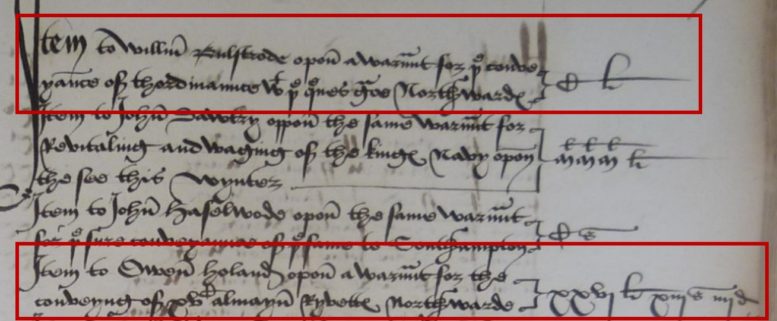 Item to Willm̄ Bulstrode opon̄ a warm̄t for þe conve
yance of thordinaunce wt þe qˀnes gˀce Northwarde } C li
Item to John̄ Dawtry oppon̄ the same warm̄t for
Revitaling and waging of the kinges Navy opon̄ } mˡ mˡ mˡ li
the see this wynter
Item to John̄ haselwode opon̄ the same warm̄t
for þe sure conveyaunce of þe same to Southampton } C s
Item to Owen̄ holand opon̄ a warm̄t for the
conveyng of xvᶜ almayn̄ Ryvettes Northwarde } xxvi li xiii s iiii d